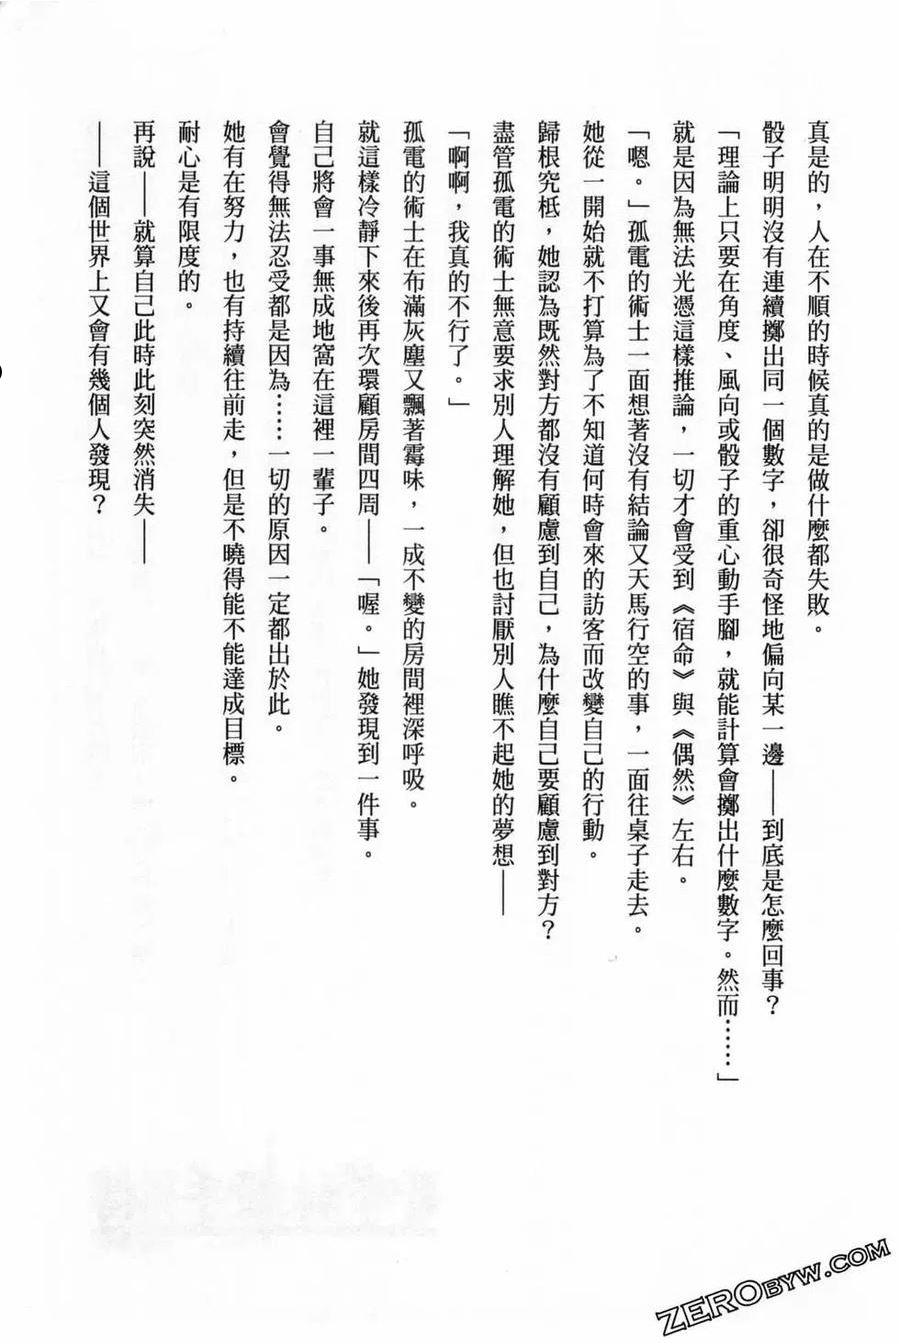 真是的，人在不順的時候真的是做什麼都失敗。
骰子明明沒有連續擲出同一個數字，卻很奇怪地偏向某一邊——到底是怎麼回事？
「理論上只要在角度、風向或骰子的重心動手腳，就能計算會擲出什麼數字。然而……」
就是因為無法光憑這樣推論，一切才會受到《宿命》與《偶然》左右。
「嗯。」孤電的術士一面想著沒有結論又天馬行空的事，一面往桌子走去。
她從一開始就不打算為了不知道何時會來的訪客而改變自己的行動。
歸根究柢，她認為既然對方都沒有顧慮到自己，為什麼自己要顧慮到對方？
盡管孤電的術士無意要求別人理解她，但也討厭別人瞧不起她的夢想——
「啊啊，我真的不行了。」
孤電的術士在布滿灰塵又飄著霉味，一成不變的房間裡深呼吸。
就這樣冷靜下來後再次環顧房間四周——「喔。」她發現到一件事。
自己將會一事無成地窩在這裡一輩子。
會覺得無法忍受都是因為……一切的原因一定都出於此。
她有在努力，也有持續往前走，但是不曉得能不能達成目標。
耐心是有限度的。
再說——就算自己此時此刻突然消失——
——這個世界上又會有幾個人發現？
ZEROBYW.COM